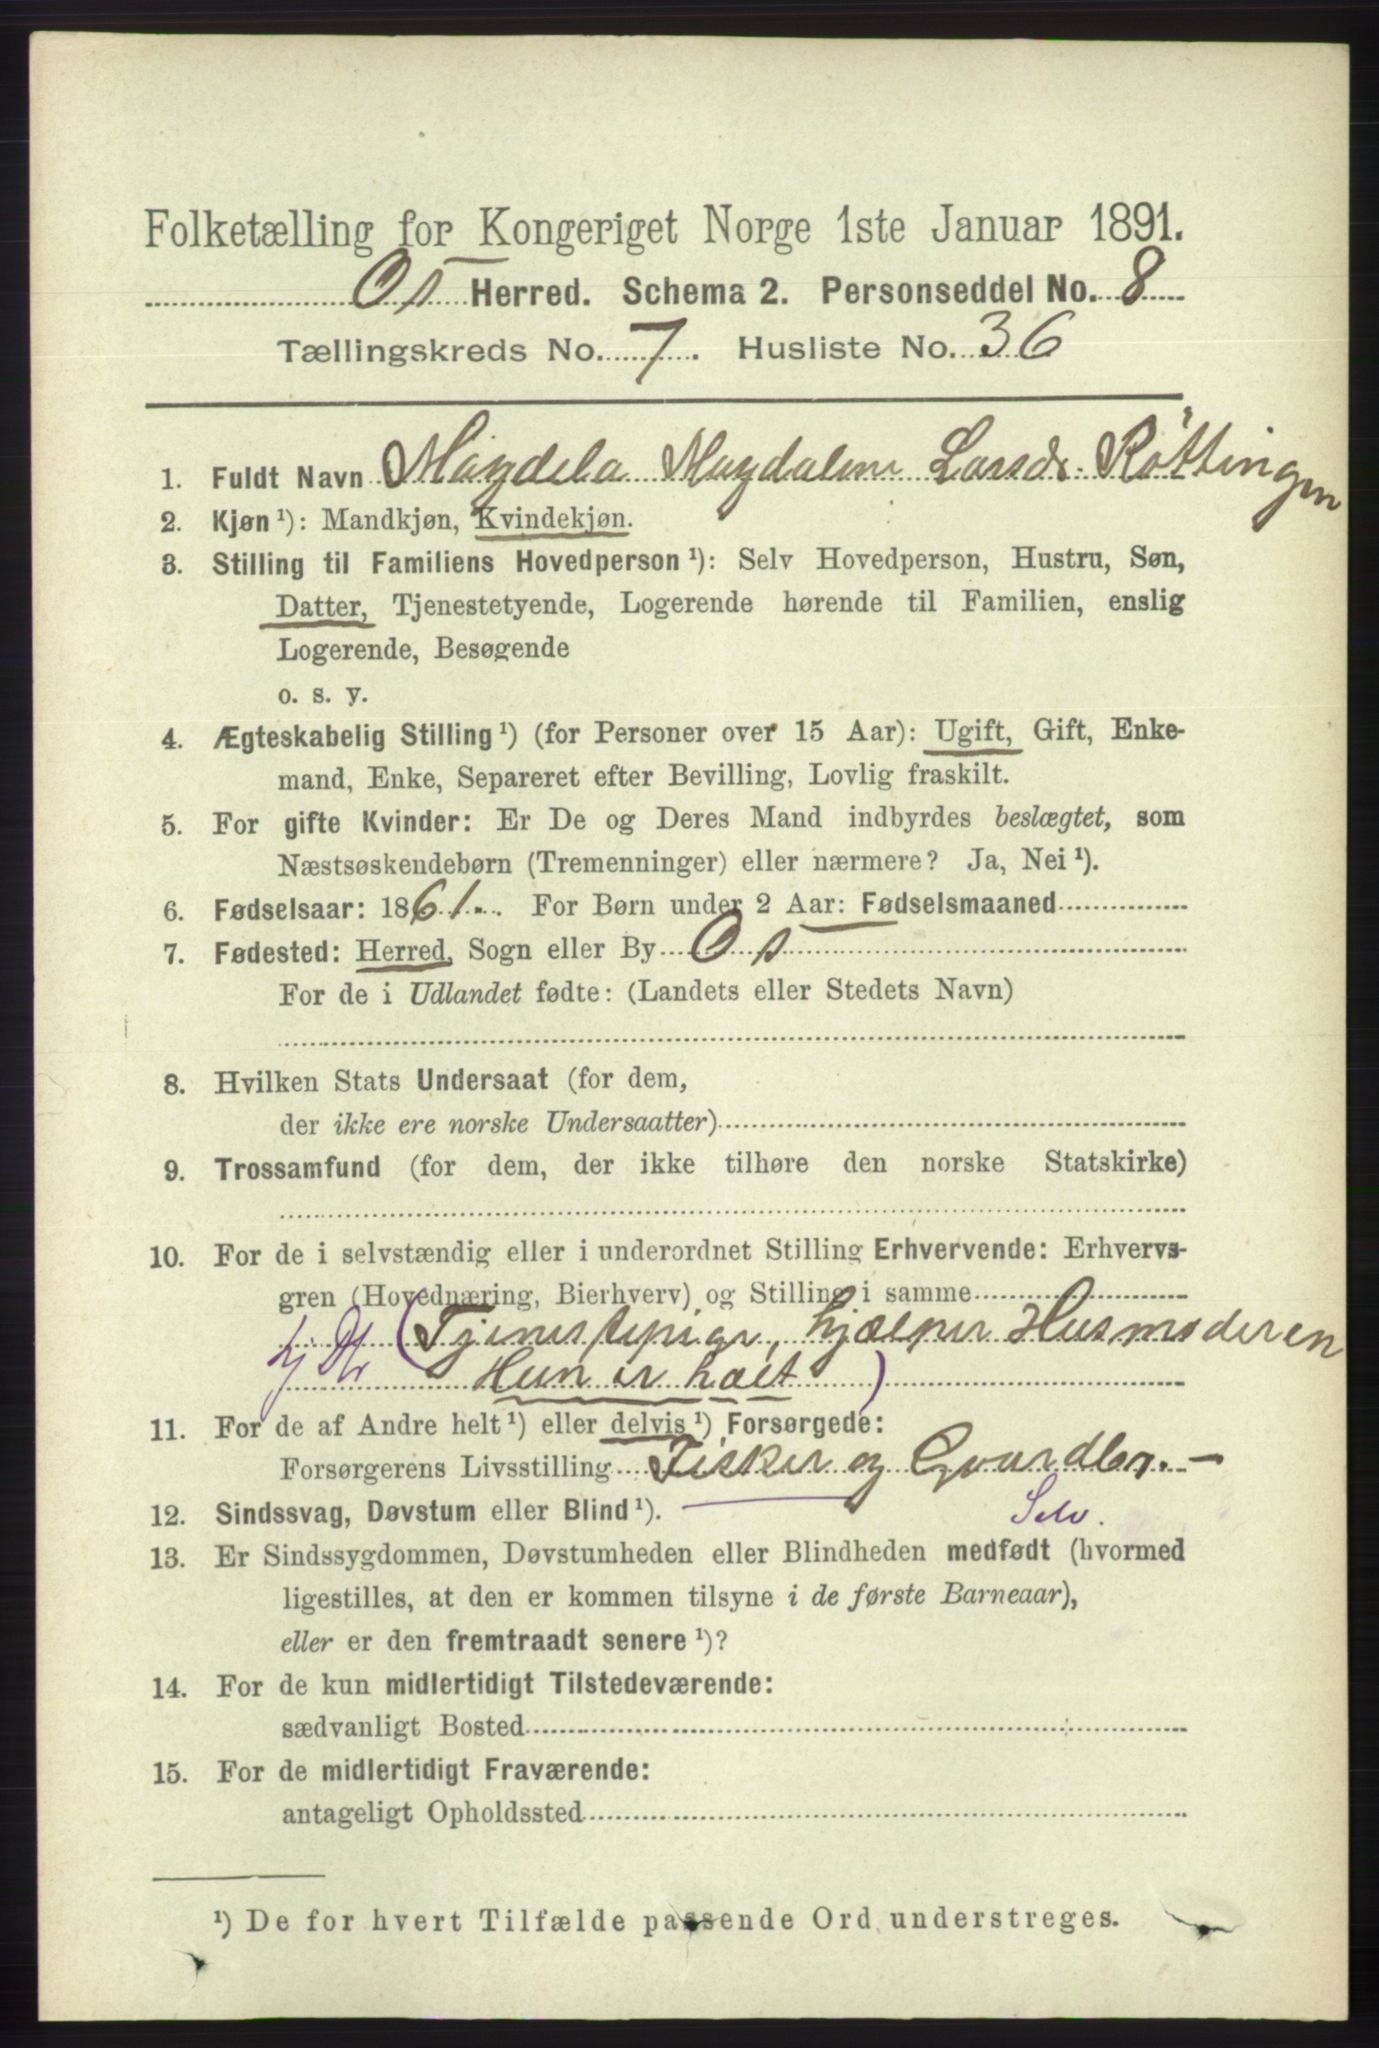 Folketælling for Kongeriget Norge 1ste Januar 1891.
Os Herred. Schema 2. Personseddel No. 8
Tællingskreds No. 7. Husliste No. 36
1. Fuldt Navn Magdela Magdalene Larsdr. Røttingen
2. Kjøn ¹): Mandkjøn, Kvindekjøn.
3. Stilling til Familiens Hovedperson ¹): Selv Hovedperson, Hustru, Søn,
Datter, Tjenestetyende, Logerende hørende til Familien, enslig
Logerende, Besøgende
o. s. v.
4. Ægteskabelig Stilling ¹) (for Personer over 15 Aar): Ugift, Gift, Enke-
mand, Enke, Separeret efter Bevilling, Lovlig fraskilt.
5. For gifte Kvinder: Er De og Deres Mand indbyrdes beslægtet, som
Næstsøskendebørn (Tremenninger) eller nærmere? Ja, Nei ¹).
6. Fødselsaar: 1861. For Børn under 2 Aar: Fødselsmaaned
7. Fødested: Herred, Sogn eller By Os
For de i Udlandet fødte: (Landets eller Stedets Navn)
8. Hvilken Stats Undersaat (for dem,
der ikke ere norske Undersaatter)
9. Trossamfund (for dem, der ikke tilhøre den norske Statskirke)
10. For de i selvstændig eller i underordnet Stilling Erhvervende: Erhvervs-
gren (Hovednæring, Bierhverv) og Stilling i samme
(Tjenestepige, hjælper Husmoderen
Hun er halt)
11. For de af Andre helt ¹) eller delvis ¹) Forsørgede:
Forsørgerens Livsstilling Fisker og Gaardbr. -
12. Sindssvag, Døvstum eller Blind ¹). Selv.
13. Er Sindssygdommen, Døvstumheden eller Blindheden medfødt (hvormed
ligestilles, at den er kommen tilsyne i de første Barneaar),
eller er den fremtraadt senere ¹)?
14. For de kun midlertidigt Tilstedeværende:
sædvanligt Bosted
15. For de midlertidigt Fraværende:
antageligt Opholdssted
¹) De for hvert Tilfælde passende Ord understreges.